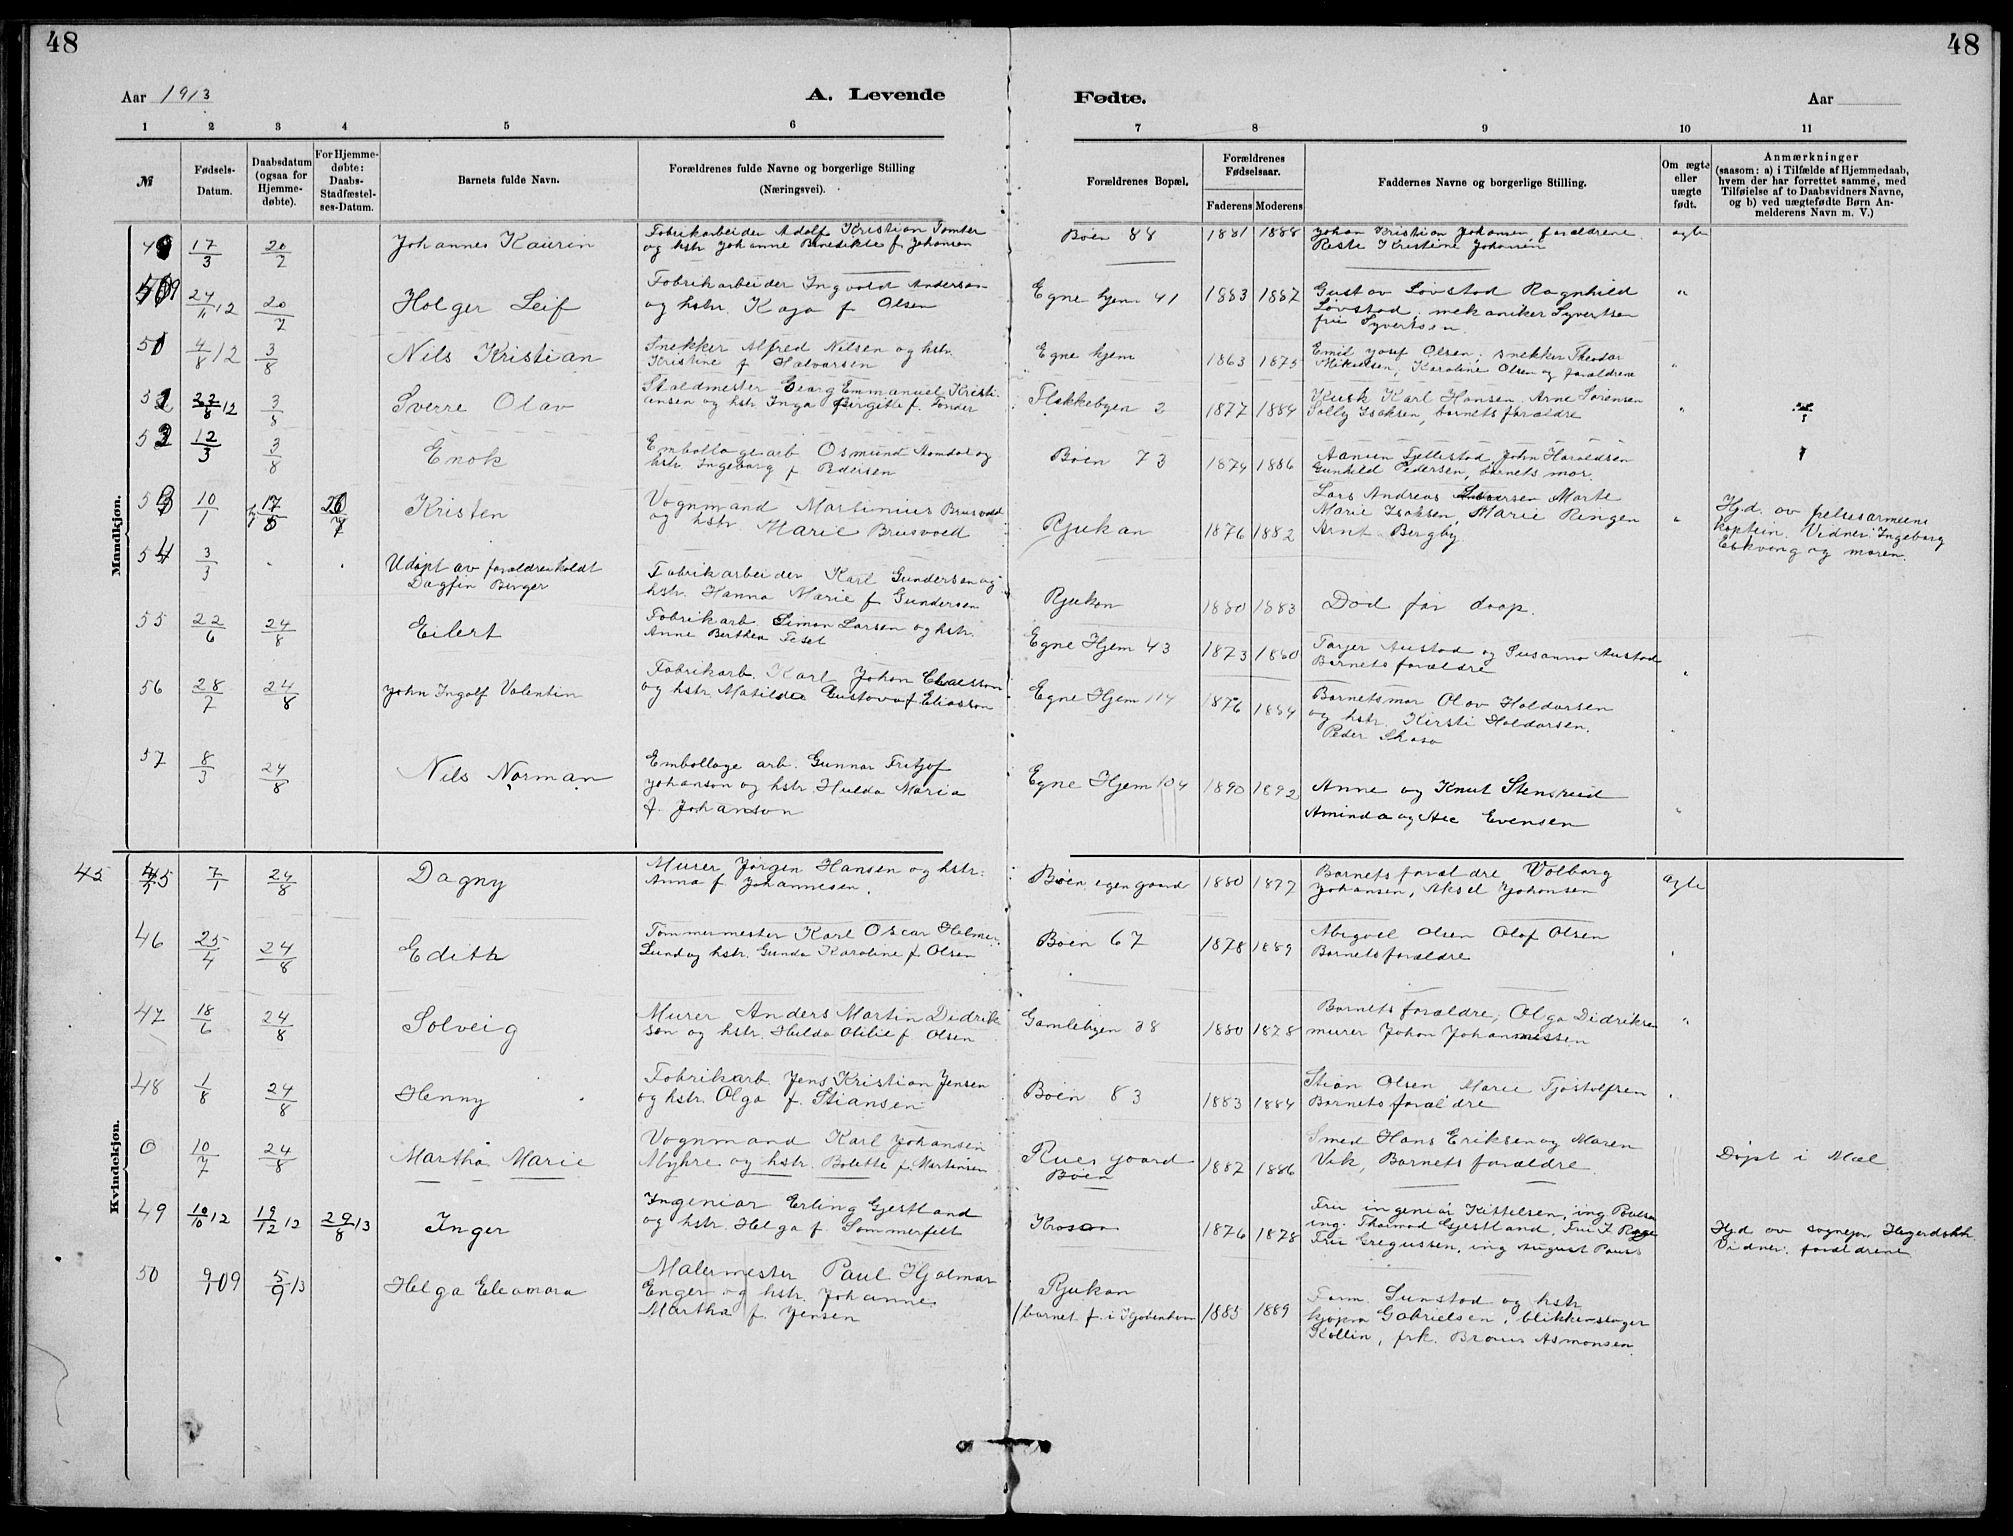 48
48
Aar 1913
A. Levende
Fødte.
Aar
1
2
3
4
5
6
7
8
9
10
11
№
Fødsels-
Datum.
Daabsdatum
(ogsaa for
Hjemme-
døbte).
For Hjemme-
døbte:
Daabs-
Stadfæstel-
ses-Datum.
Barnets fulde Navn.
Forældrenes fulde Navne og borgerlige Stilling
(Næringsvei).
Forældrenes Bopæl.
Forældrenes
Fødselsaar.
Faderens
Moderens
Faddernes Navne og borgerlige Stilling.
Om ægte
eller
uægte
født.
Anmærkninger
(saasom: a) i Tilfælde af Hjemmedaab,
hvem der har forrettet samme, med
Tilføielse af to Daabsvidners Navne,
og b) ved uægtefødte Børn An-
melderens Navn m. V.)
Mandkjøn.
17/3 20/7 Johannes Kaurin
Fabrikarbeider Adolf Kristian Tomter
og hstr Johanne f Johansen
Bøen 88 1881 1888
Johan Kristian Johansen, forældrene
Kristine Johansen
ægte
24/11 12 20/7 Holger Leif
Fabrikarbeider Ingvald Andersen
og hstr. Kaja f Olsen
Egne hjem 41 1883 1887
Gustav Løvstad Ragnhild
Løvstad, mekaniker Syvertsen
fru Syvertsen.
"
51 4/8 12 3/8 Nils Kristian
Snekker Alfred Nilsen og hstr.
Kristine f Halvorsen
Egne hjem 1863 1875
Emil Josef Olsen, snekker Theodor
Mikaelsen, Karoline Olsen og forældrene
"
52 12 3/8 Sverre Olav
Staldmester Georg Emmanuel Kristi-
ansen og hstr Inga Birgitte f. Tander
Flekkebyen 2 1877 1884
Kusk Karl Hansen. Arne Sørensen
Solly Isaksen, barnets forældre
"
53 12/3 3/8 Enok
Emballagearb Osmund Aamdal og
hstr. Ingeborg f Pedersen
Bøen 73 1874 1886
Aanun Fjellestad John Haraldsen
Gunhild Pedersen, barnets mor.
10/1 17 Kristen
Vognmand Martinius Brusvold
og hstr. Marie Brusvold
Rjukan 1876 1882
Lars Andreas Marte
Marie Isaksen, Marie Ringen
Arnt Bergby
"
Hjd. av frelsesarmeens
kaptein. Vidner: Ingeborg
Eskvang og moren.
54 3/3
Udøpt av forældrene kaldt
Dagfin Birger
Fabrikarbeider Karl Gundersen og
hstr. Hanna Marie f Gundersen
Rjukan 1880 1883
Død før daap.
55 22/6 24/8 Eilert
Fabrikarb. Simon Larsen og hstr.
Anne Berthea Teset
Egne Hjem 43 1873 1880
Tarjer Austad og Susanna Austad
Barnets forældre
"
56 28/7 24/8 John Ingolf Valentin
Fabrikarb. Karl Johan Claesson
og hstr. Matilda Gustava f Eliasson
Egne Hjem 114 1876 1884
Barnetsmor Olav Haldorsen
og hstr. Kirsti Haldorsen.
Peder Skaso
"
57 8/3 24/8 Nils Norman
Emballage arb. Gunnar Fritjof
Johanson og hstr. Hulda Maria
f. Johanson
Egne Hjem 104 1890 1892
Anne og Knut Stensrud
Aminda og Evensen
"
Kvindekjøn.
45 45 7/1 24/8 Dagny
Murer Jørgen Hansen og hstr.
Anna f Johannesen.
Bøen, egen gaard 1880 1877
Barnets forældre Valborg
Johansen, Aksel Johansen
ægte
46 25/4 24/8 Edith
Tømmermester Karl Oscar Helmer
Lund og hstr. Gunda Karoline f Olsen
Bøen 67 1878 1889
Abigael Olsen Olaf Olsen
Barnets forældre
"
47 18/6 24/8 Solveig
Murer Anders Martin Didrik-
sen og hstr. Hulda Otilie f. Olsen
Gamlebyen 38 1880 1878
Barnets forældre, Olga Didriksen
murer Johan Johannessen
"
48 1/8 24/8 Henny
Fabrikarb. Jens Kristian Jensen
og hstr. Olga f. Stiansen
Bøen 83 1883 1884
Stian Olsen Marie Tjostolfsen
Barnets forældre
"
0 10/7 24/8 Martha Marie
Vognmand Karl Johansen
Myhre og hstr. Bolette f. Martinsen
Rues gaard
Bøen
1887 1886
Smed Hans Eriksen og Maren
Vik, Barnets forældre
Døpt i Mæl
49 10/10 12 19/12 12 29/8 13 Inger
Ingeniør Erling Gjestland
og hstr. Helga f. Sommerfelt
Krosso 1876 1878
Fru ingeniør Kittelsen, ing Paulsen
ing. Thormod Gjestland, Fru
Fru Gregussen, ing August Paus
Hjd av sognepr. Hegerdahl.
Vidner: forældrene
50 9/9 09 5/9 13 Helga Eleonora
Malermester Paul Hjalmar
Enger og hstr. Johanne
Martha f. Jensen
Rjukan
(barnet f. i Kjøbenhavn
1885 1889
Form. Sunstad og hstr
kjøpm Gabrielsen, blikkenslager
Kollin, frk. Asmonsen.